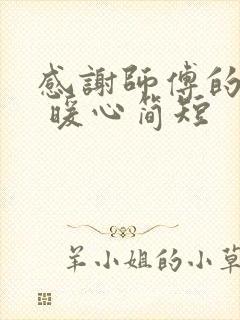 感謝師傅的
暖心简短
羊小姐的小草